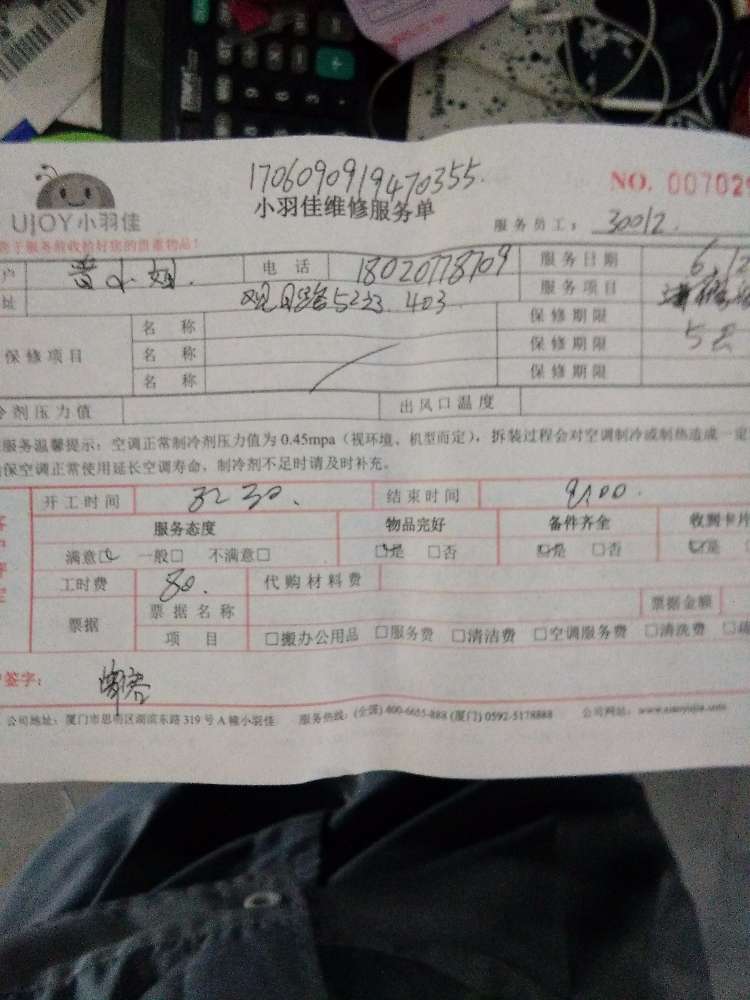 1706090919470355.
UJOY小羽佳
小羽佳维修服务单
NO. 007029
服务员工: 30012.
于服务前收拾好您的贵重物品!
户 小姐. 电 话 18020778709 服务日期 6.12
址 403 服务项目
保修项目 名 称 保修期限
名 称 保修期限
名 称 保修期限
冷剂压力值 出风口温度
服务温馨提示: 空调正常制冷剂压力值为 0.45mpa (视环境、机型而定), 拆装过程会对空调制冷或制热造成一定
保空调正常使用延长空调寿命, 制冷剂不足时请及时补充。
开工时间 结束时间
服务态度 物品完好 备件齐全 收到卡片
满意□ 一般□ 不满意□ □是 □否 □是 □否 □是
工时费 80. 代购材料费
票据 票据名称 票据金额
项 目 □搬办公用品 □服务费 □清洁费 □空调服务费 □清洗费
签字:
公司地址: 厦门市思明区湖滨东路 319 号 A 幢小羽佳 服务热线: (全国) 400-6655-888 (厦门) 0592-5178888 公司网站: www.xiaoyujia.com